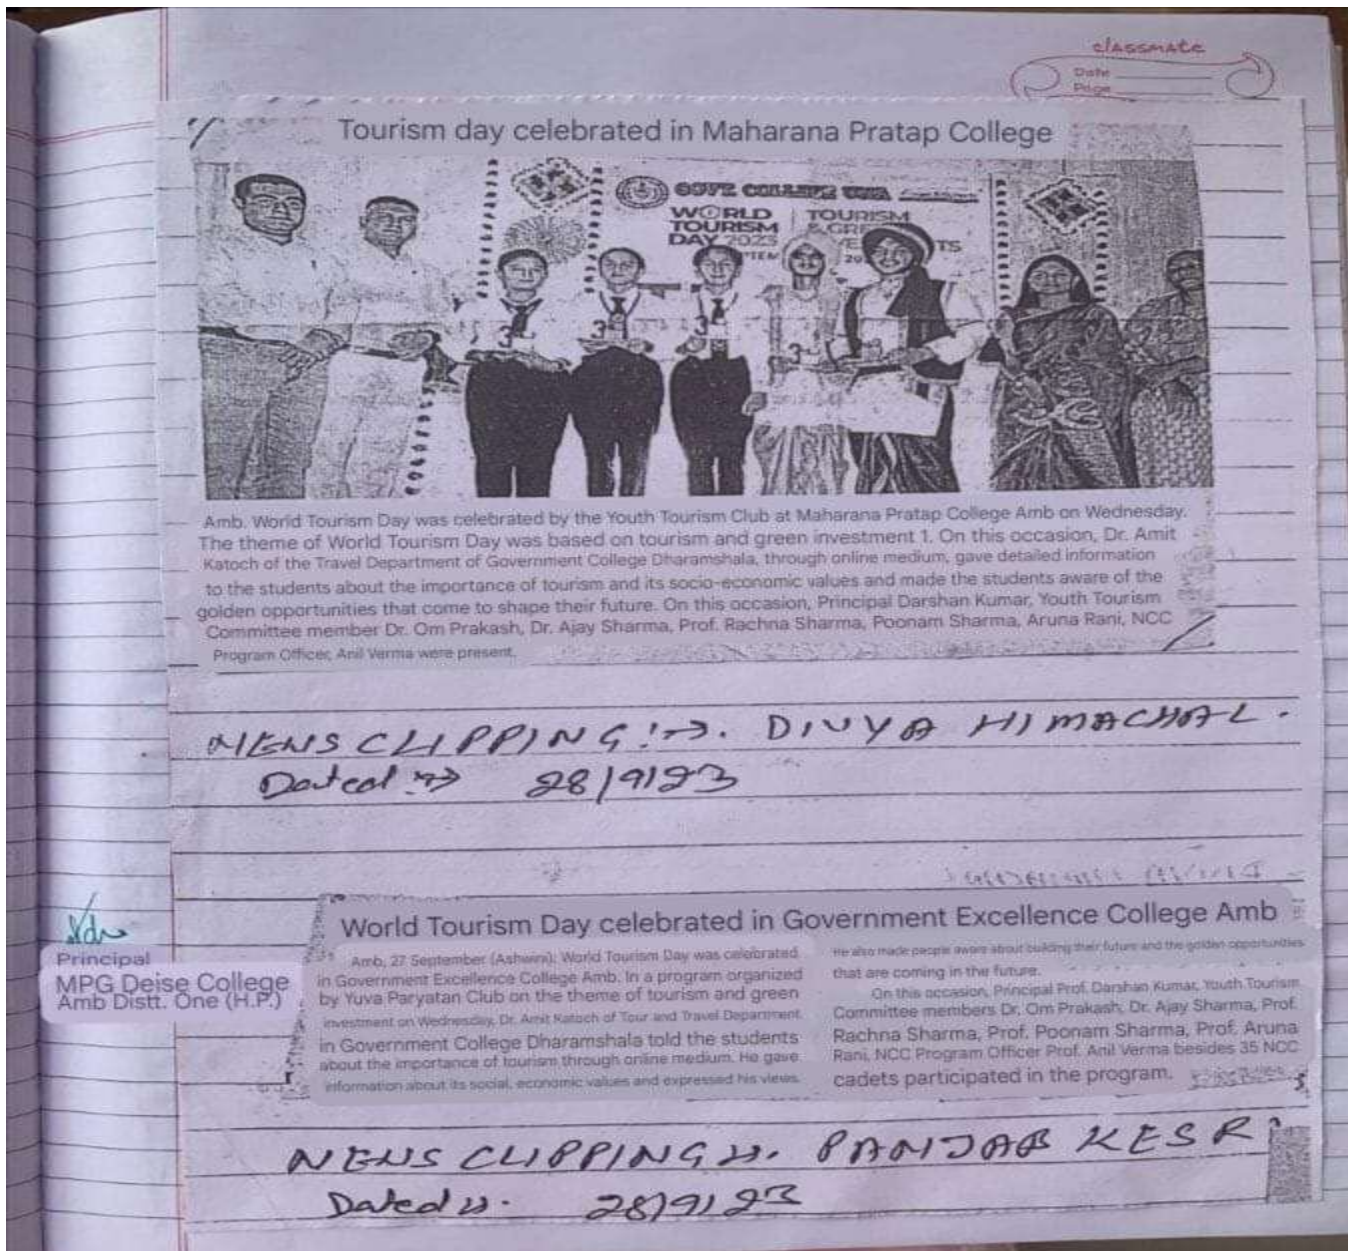 classmate
Date
Page
Tourism day celebrated in Maharana Pratap College
GOVT. COLLEGE UNA
WORLD TOURISM
TOURISM & GRE
DAY 2023
Amb. World Tourism Day was celebrated by the Youth Tourism Club at Maharana Pratap College Amb on Wednesday.
The theme of World Tourism Day was based on tourism and green investment 1. On this occasion, Dr. Amit
Katoch of the Travel Department of Government College Dharamshala, through online medium, gave detailed information
to the students about the importance of tourism and its socio-economic values and made the students aware of the
golden opportunities that come to shape their future. On this occasion, Principal Darshan Kumar, Youth Tourism
Committee member Dr. Om Prakash, Dr. Ajay Sharma, Prof. Rachna Sharma, Poonam Sharma, Aruna Rani, NCC
Program Officer, Anil Verma were present.
NEWS CLIPPING :→. DIVYA HIMACHAL.
Dated :→ 28/9/23
World Tourism Day celebrated in Government Excellence College Amb
Amb, 27 September (Ashwini): World Tourism Day was celebrated
in Government Excellence College Amb. In a program organized
by Yuva Paryatan Club on the theme of tourism and green
investment on Wednesday, Dr. Amit Katoch of Tour and Travel Department
in Government College Dharamshala told the students
about the importance of tourism through online medium. He gave
information about its social, economic values and expressed his views.
He also made people aware about building their future and the golden opportunities
that are coming in the future.
On this occasion, Principal Prof. Darshan Kumar, Youth Tourism
Committee members Dr. Om Prakash, Dr. Ajay Sharma, Prof.
Rachna Sharma, Prof. Poonam Sharma, Prof. Aruna
Rani, NCC Program Officer Prof. Anil Verma besides 35 NCC
cadets participated in the program.
Principal
MPG Deise College
Amb Distt. One (H.P.)
NEWS CLIPPING :. PANJAB KESRI
Dated :. 28/9/23